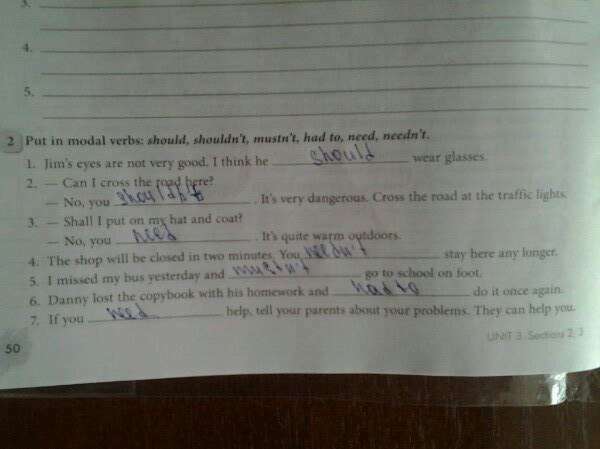 3.
4.
5.
2 Put in modal verbs: should, shouldn't, mustn't, had to, need, needn't.
1. Jim's eyes are not very good. I think he should wear glasses.
2. — Can I cross the road here?
— No, you shouldn't. It's very dangerous. Cross the road at the traffic lights.
3. — Shall I put on my hat and coat?
— No, you need. It's quite warm outdoors.
4. The shop will be closed in two minutes. You needn't stay here any longer.
5. I missed my bus yesterday and mustn't go to school on foot.
6. Danny lost the copybook with his homework and had to do it once again.
7. If you need help, tell your parents about your problems. They can help you.
UNIT 3. Sections 2, 3
50